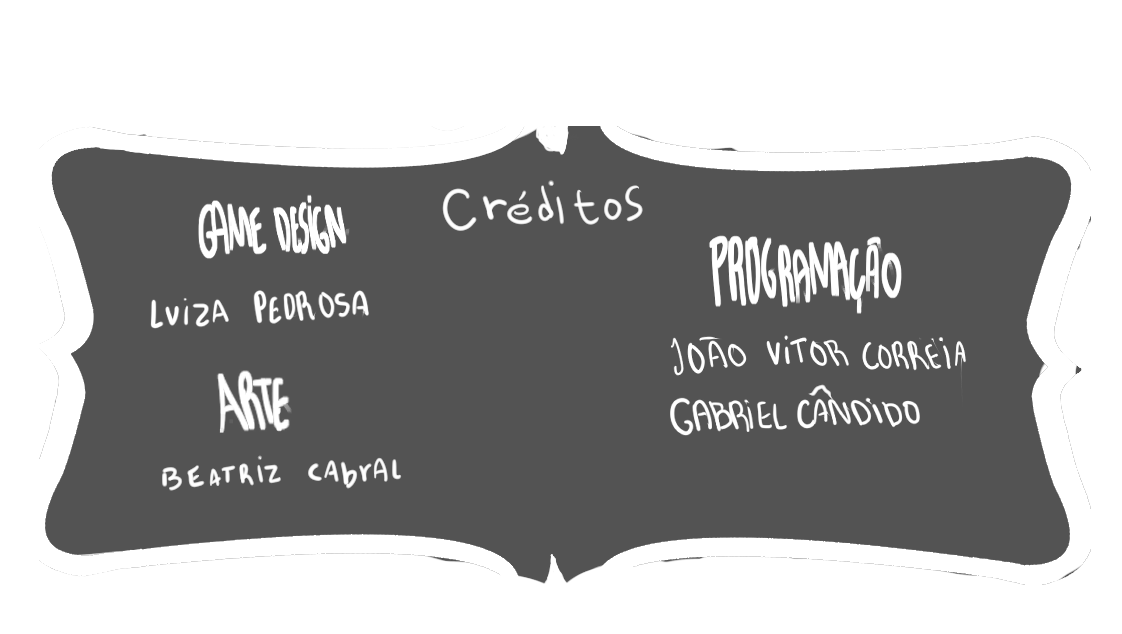 Créditos
GAME DESIGN
LUiZA PEDROSA
ARTE
BEATRiZ CAbrAL
PROGRAMAÇÃO
JOÃO ViTOR CORREiA
GABRiEL CÂNDiDO